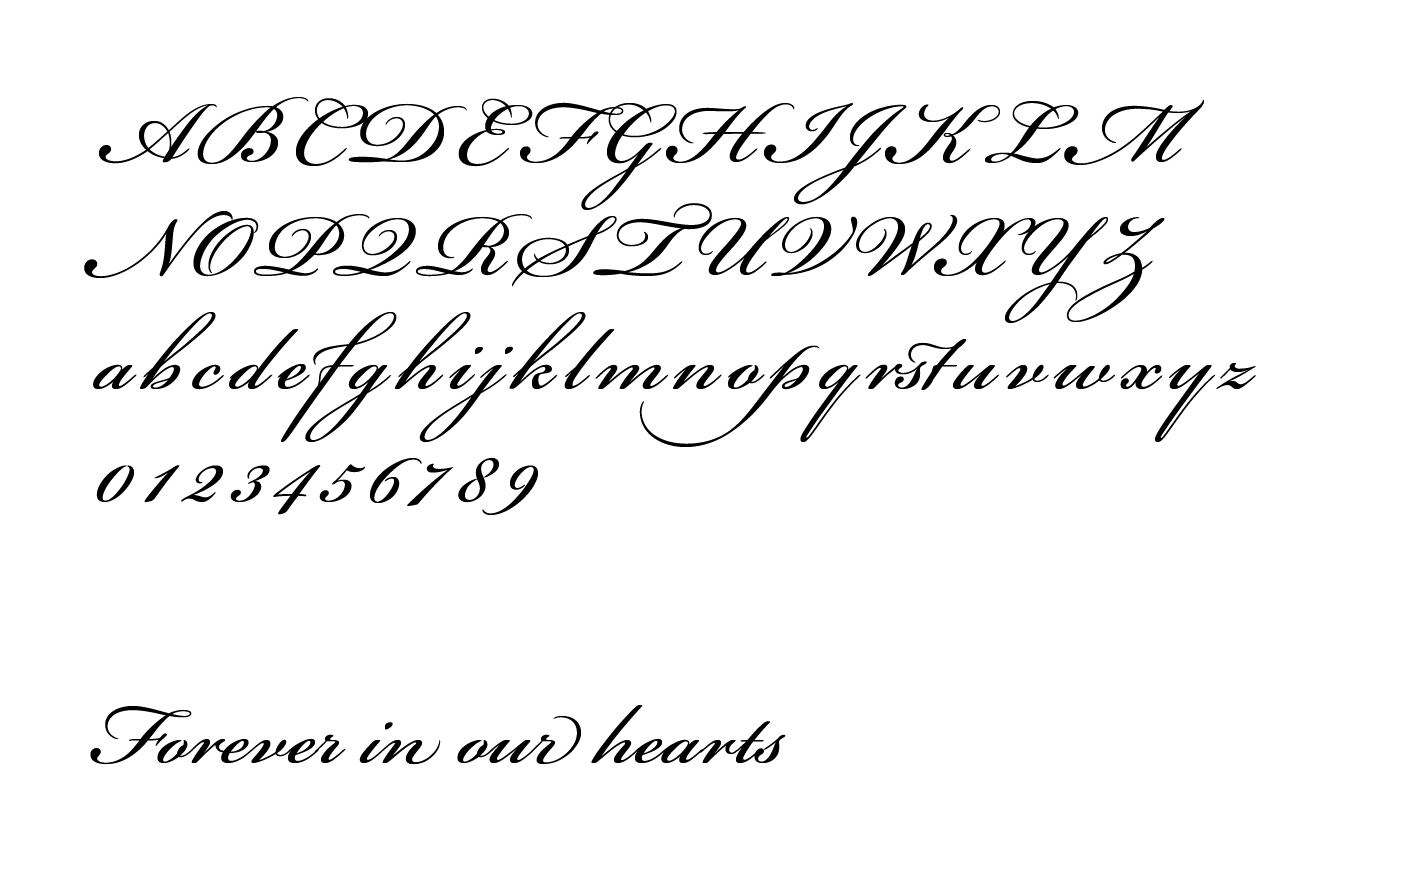 ABCDEFGHIJKLM
NOPQRSTUVWXYZ
abcdefghijklmnopqrstuvwxyz
0123456789
Forever in our hearts